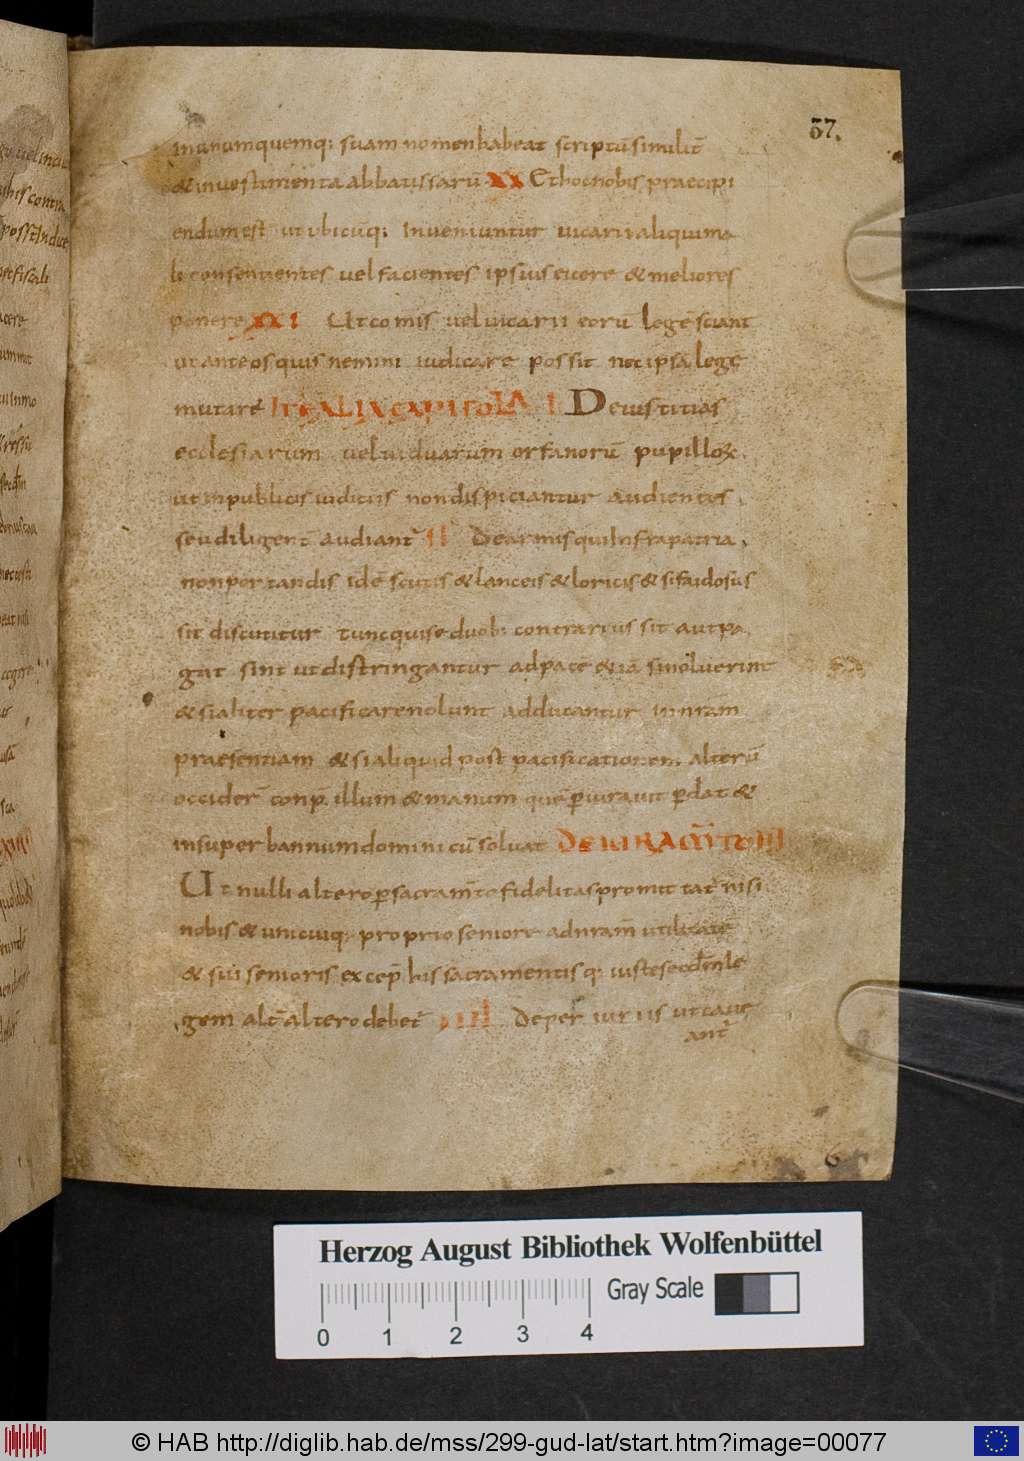 57.
inunumquemq; suam nomen habeat scriptū similit̄
& in uestimenta abbatissarū XX Et hoc nobis praecipi
endum est ut ubicūq; inueniuntur uicarii aliqui ma
li consentientes uel facientes ipsius eicere & meliores
ponere XXI Ut comis uel uicarii eorū legē sciant
ut ante os quis nemini iudicare possit nec ipsā legē
mutare ITE ALIA CAPITOLA I De iustitias
ecclesiarum uel uiduarum orfanorū pupilloꝝ.
ut in publicis iudiciis non dispiciantur audientes.
seu diligent̄ audiant̄ II De armis qui infra patria.
non portandis idē scutis & lanceis & loricis & si faidosus
sit discutitur tunc quis e duob; contrarius sit aut pa
gat sint ut distringantur ad pace &iā si noluerint
& si aliter pacificare nolunt adducantur in nr̄am
praesentiam & si aliquid post pacificationem alterū
occider̄ conp̄ illum & manum quē ꝑiurauit ꝑdat &
insuper bannum domini cū soluat DE IURAM̄TO III
Ut nulli altero ꝑ sacram̄to fidelitas promittat̄ nisi
nobis & unicuiq; proprio seniore ad nr̄am utilitate
& sui senioris excep̄ his sacramentis q; iuste secdm̄ le
gem alt̄ altero debet̄ IIII De periuriis ut caue
ant̄
Herzog August Bibliothek Wolfenbüttel
0 1 2 3 4
Gray Scale
© HAB http://diglib.hab.de/mss/299-gud-lat/start.htm?image=00077